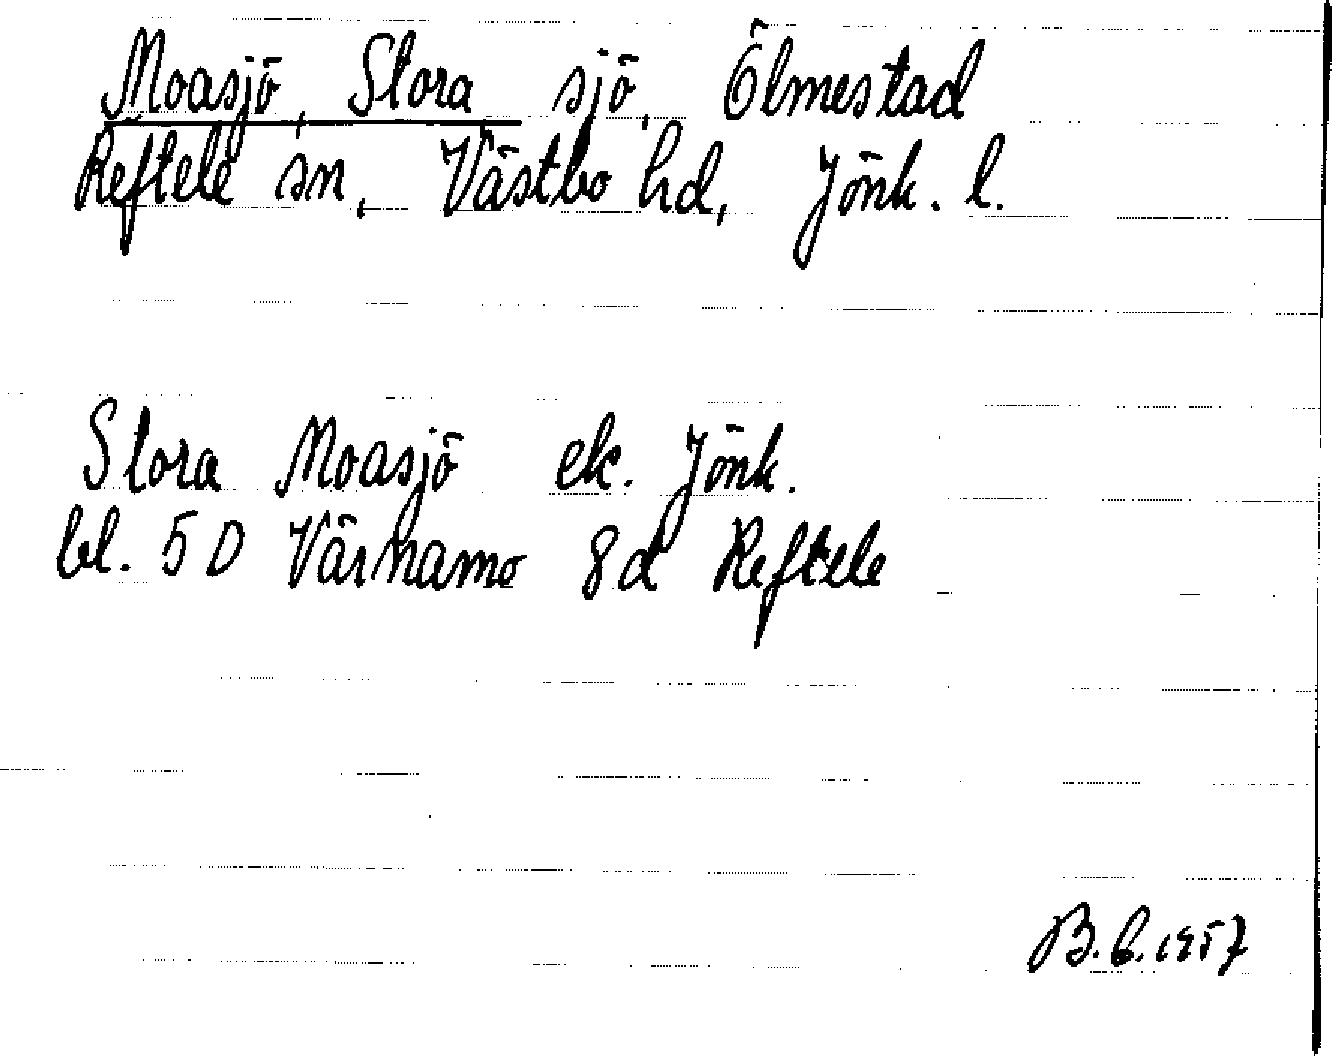 Moasjö, Stora sjö, Ölmestad
Reftele sn, Västbo hd, Jönk. l.
Stora Moasjö ek. Jönk.
bl. 5 D Värnamo 8d Reftele
B.G. 1957